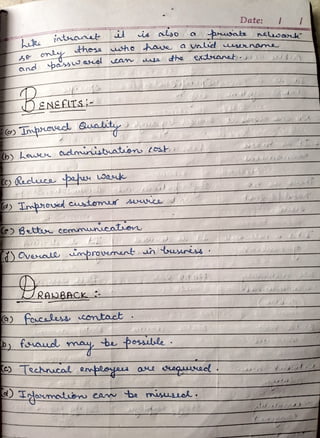 Date: / /
Like intranet it is also a private network
so only those who have a valid username
and password can use the extranet.
BENEFITS :-
(a) Improved Quality
(b) Lower administration cost.
(c) Reduce paper work
(d) Improved customer service
(e) Better communication
(f) Overall improvement in business.
DRAWBACK :-
(a) Faceless contact.
(b) Fraud may be possible.
(c) Technical employees are required.
(d) Information can be misused.